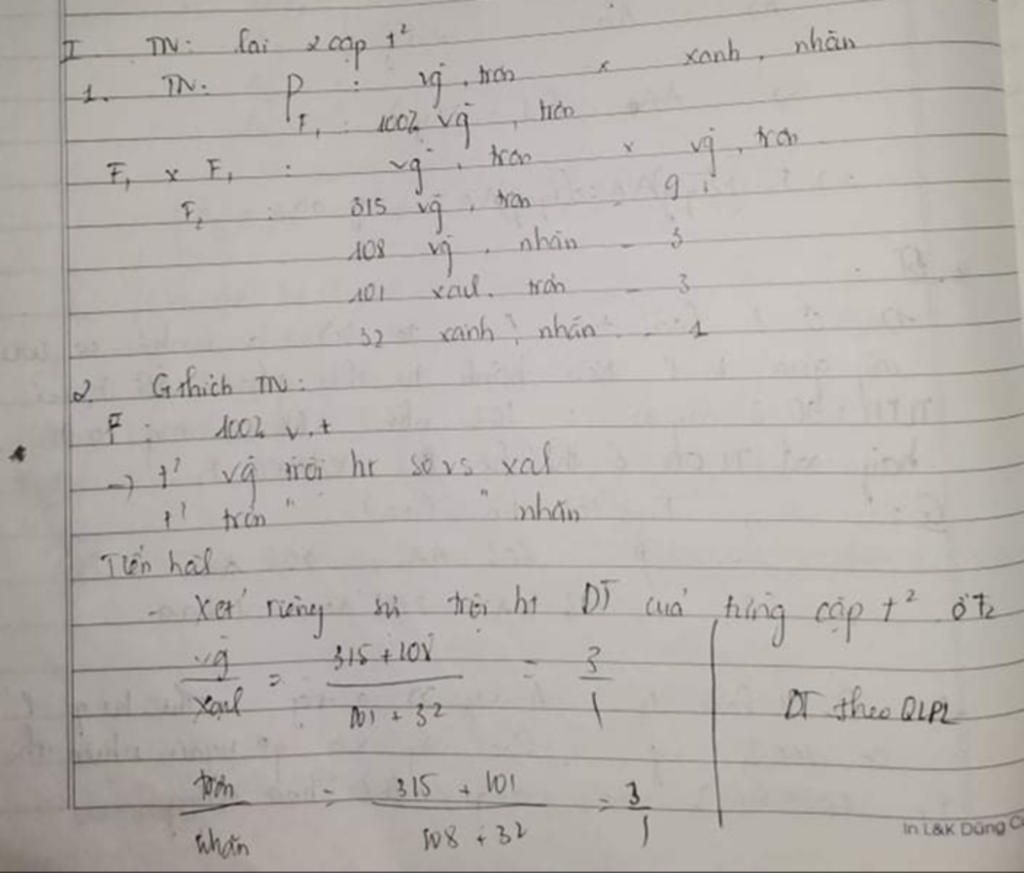 I TN: lai 2 cặp t²
1. TN: P : vg, trơn x xanh, nhăn
F₁ : 100% vg, trơn
F₁ x F₁ : vg, trơn x vg, trơn
F₂ : 315 vg, trơn 9
108 vg, nhăn - 3
101 xanh, trơn - 3
32 xanh, nhăn - 1
2. Gthích TN:
F : 100% v, t
→ t² vg trội ht so vs xanh
t² trơn " " nhăn
Tiến hành
- Xét riêng sự DT của từng cặp t² ở F₂
vg/xanh = 315 + 108 / 101 + 32 = 3/1
DT theo QLPL
trơn/nhăn = 315 + 101 / 108 + 32 = 3/1
In L&K Dũng